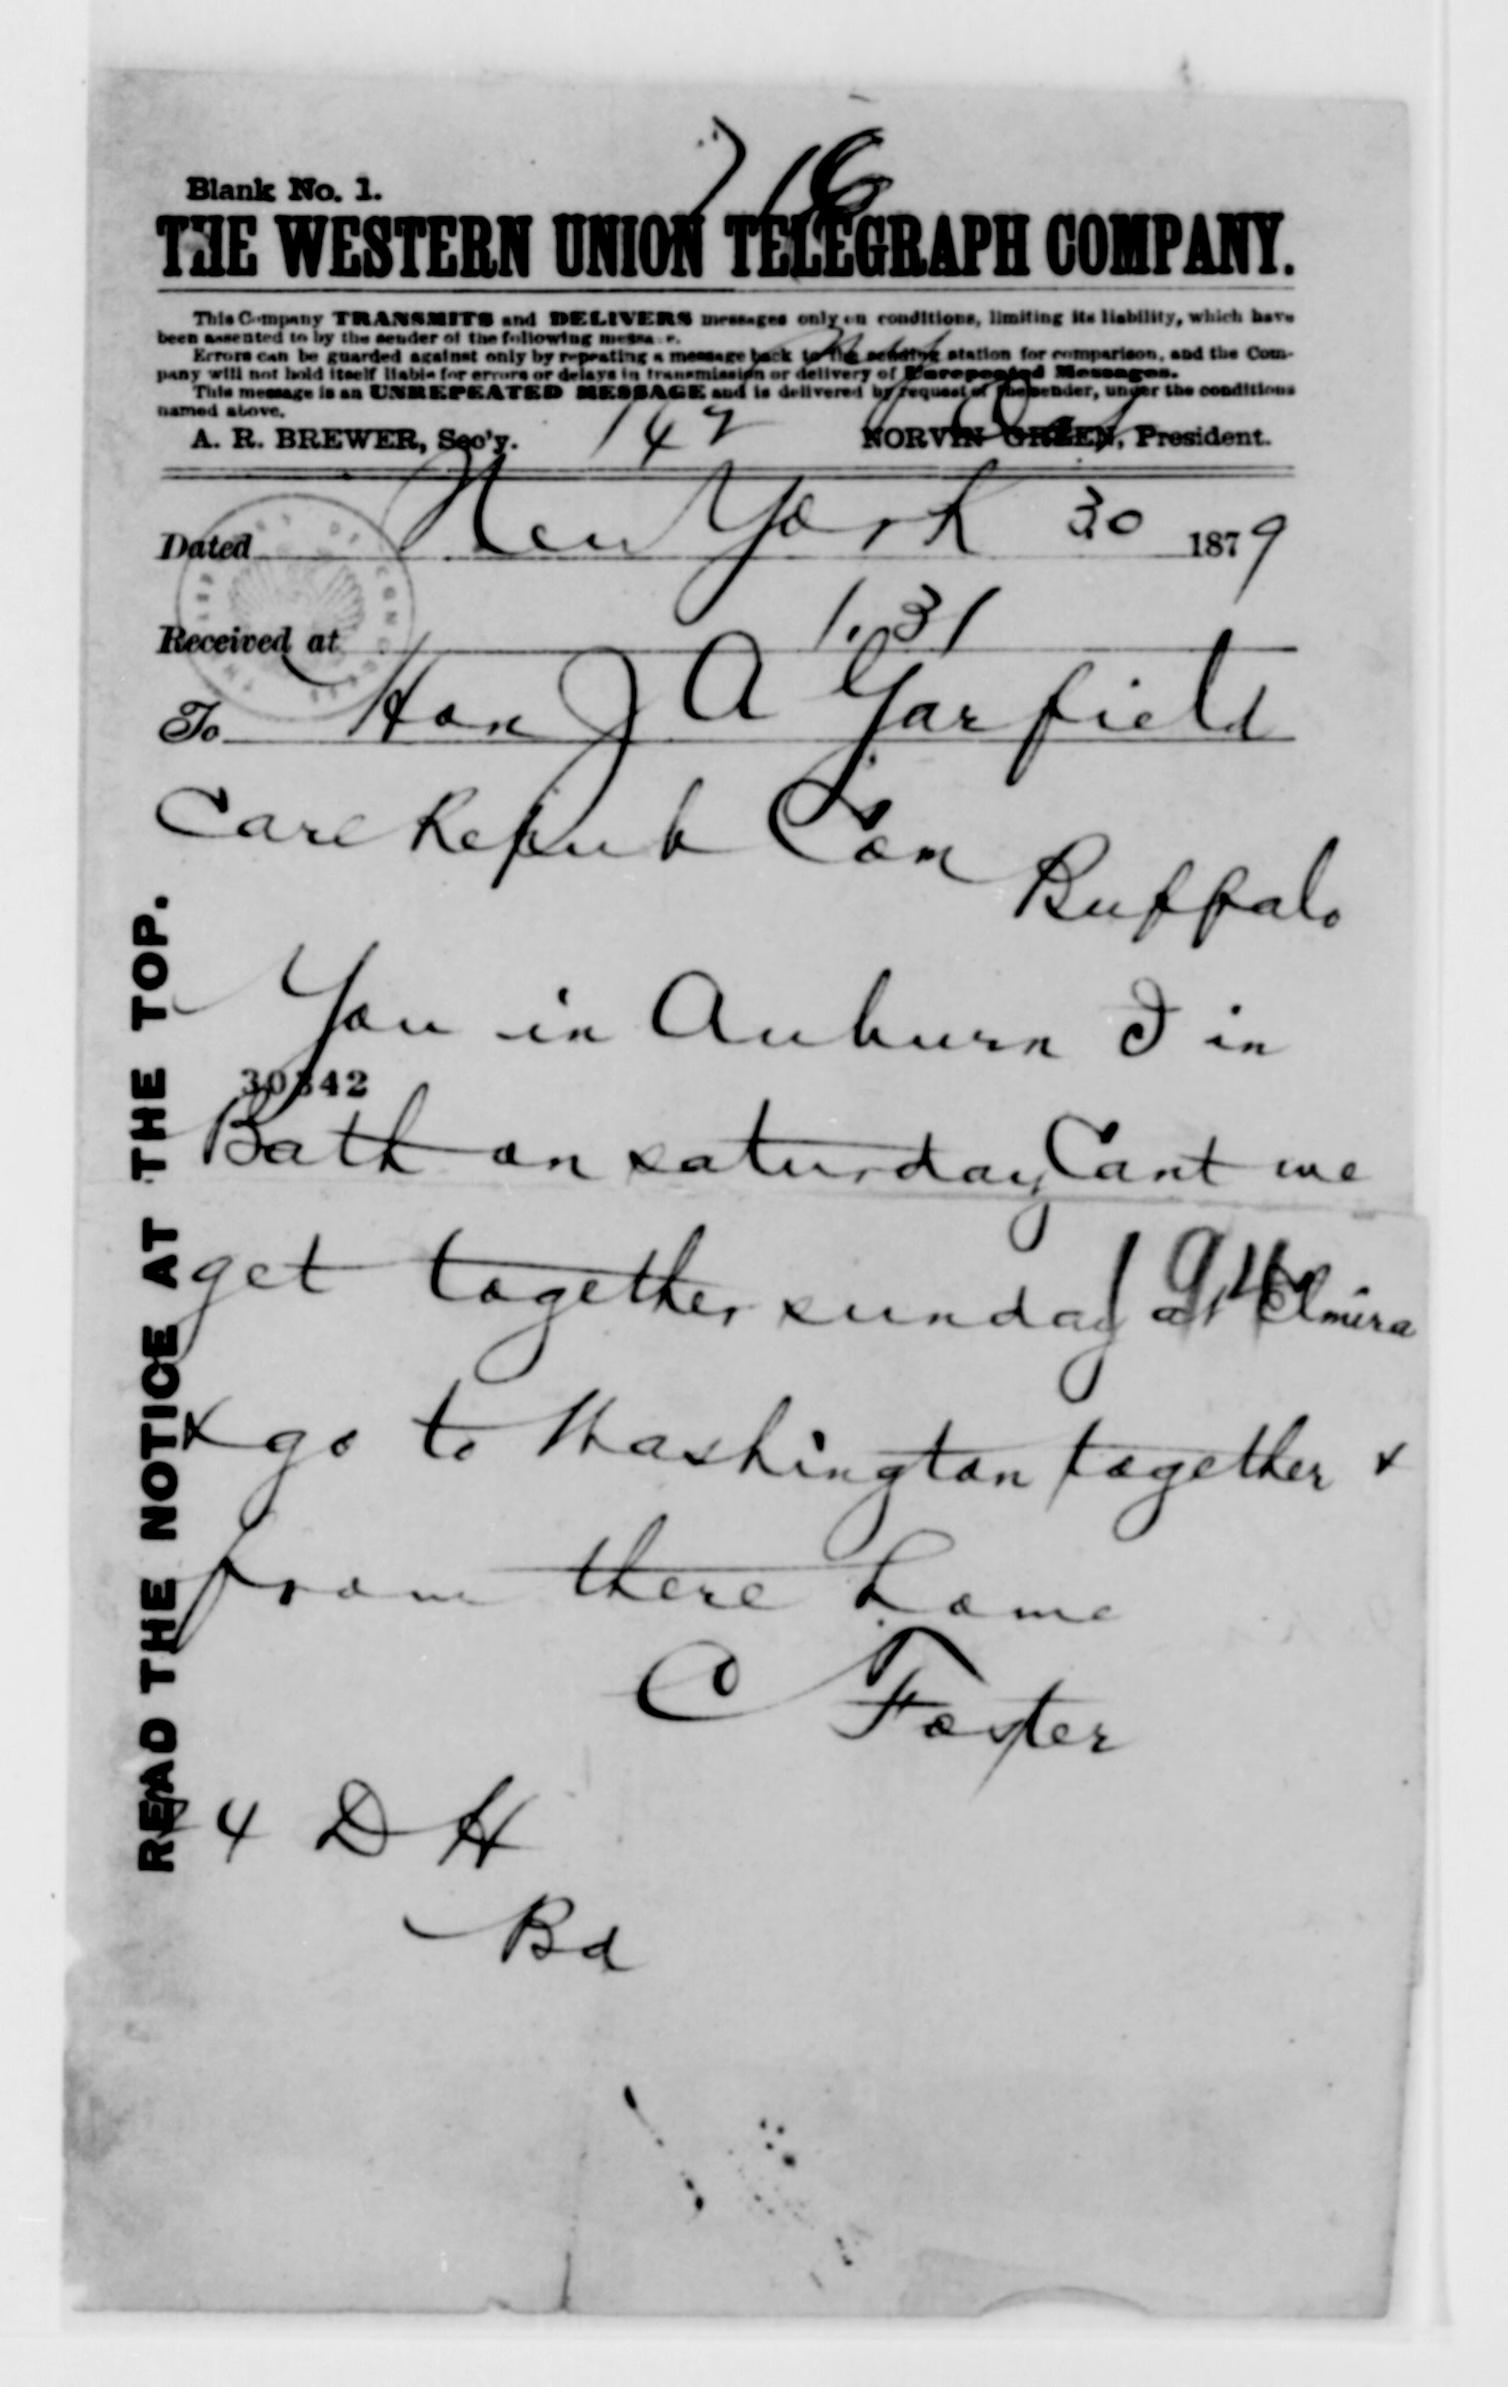 716
Blank No. 1.
THE WESTERN UNION TELEGRAPH COMPANY.
This Company TRANSMITS and DELIVERS messages only on conditions, limiting its liability, which have
been assented to by the sender of the following message.
Errors can be guarded against only by repeating a message back to the sending station for comparison, and the Com-
pany will not hold itself liable for errors or delays in transmission or delivery of Unrepeated Messages.
This message is an UNREPEATED MESSAGE and is delivered by request of the sender, under the conditions
named above.
A. R. BREWER, Sec'y. 142 NORVIN GREEN, President.
Dated New York 30 1879
Received at 1.31
To Hon J A Garfield
Care Repub Com
Buffalo
You in Auburn I in
30342
Bath on saturday Cant we
get together sunday at Elmira
& go to Washington together &
from there home
C Foster
24 D H
Bd
READ THE NOTICE AT THE TOP.